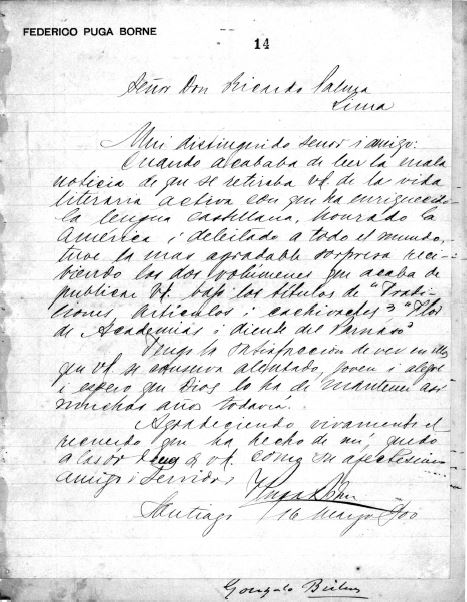 FEDERICO PUGA BORNE
14
Señor Don Ricardo Palma
Lima
Mui distinguido señor i amigo:
Cuando acababa de leer la mala
noticia de que se retiraba Vd. de la vida
literaria activa con que ha enriquecido
la lengua castellana, honrado la
América i deleitado a todo el mundo,
tuve la mas agradable sorpresa reci-
biendo los dos volúmenes que acaba de
publicar Vd. bajo los títulos de "Tradi-
ciones, artículos i cachivaches" i "Flor
de Academias i diente del Parnaso"
Tengo la satisfaccion de ver en ellos
que Vd. se conserva alentado, joven i alegre
i espero que Dios lo ha de mantener asi
muchos años todavía.
Agradeciendo vivamente el
recuerdo que ha hecho de mí, quedo
a las de Vd. como su afectísimo
amigo i servidor
Puga Borne
Santiago 16 marzo 900
Gonzalo Bulnes